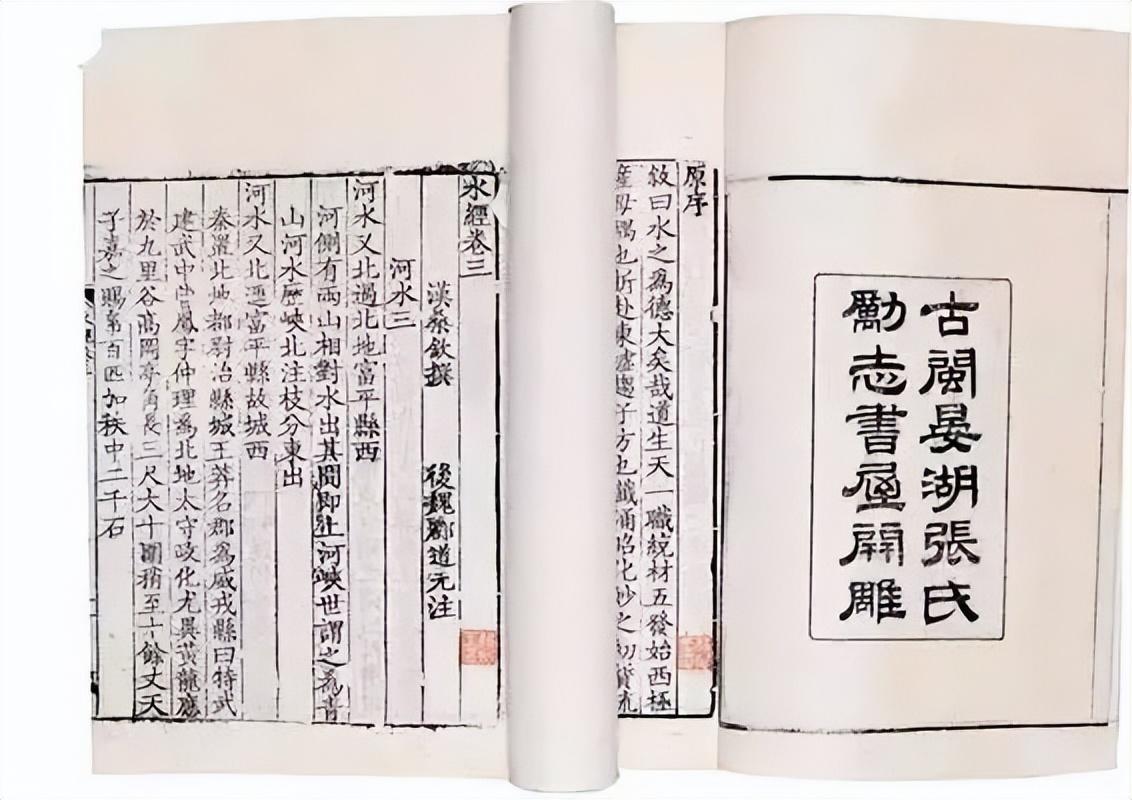 古閩晏湖張氏
勵志書屋開雕
原序
敘曰水之爲德大矣哉道生天一職統材五發始西極
母隅也折赴東墟趨子方也涌昭化妙之初資流
水經卷三
漢桑欽撰 後魏酈道元注
河水三
河水又北過北地富平縣西
河側有兩山相對水出其間即上河峽世謂之爲青
山河水歷峽北注枝分東出
河水又北逕富平縣故城西
秦置北地都尉治縣城王莽名郡爲威戎縣曰特武
建武中曹鳳字仲理爲北地太守政化尤異黃龍應
於九里谷高岡亭角長三尺大十圍稍至十餘丈天
子嘉之賜帛百匹加秩中二千石